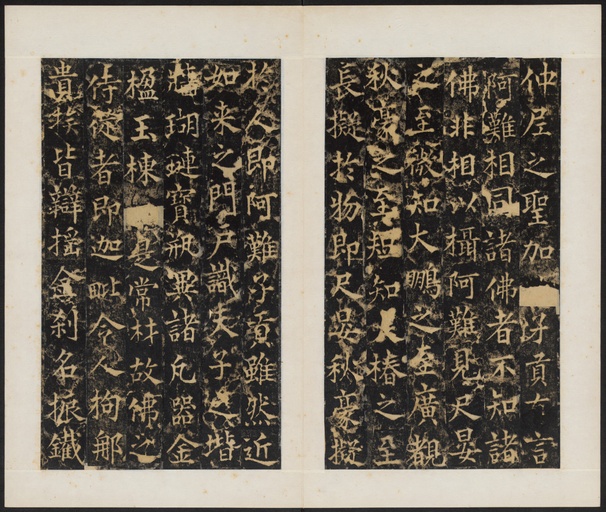 仲尼之聖加貢言
阿難相同諸佛者不知諸
佛非相以攝阿難見尺晏
之至微知大鵬之至廣觀
秋豪之至短知大椿之至
長擬於物即尺晏秋豪擬
於人即阿難子貢雖然近
如来之門戶識夫子之堦
瑚璉寶瓶異諸凡器金
楹玉棟是常材故佛之
侍從者即迦毗令人拘那
貴族皆辯搖金剎名振鐵